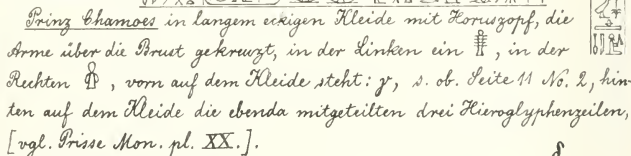 Prinz Chamoes in langem eckigen Kleide mit Horuszopf, die
Arme über die Brust gekreuzt, in der Linken ein 𓊽, in der
Rechten 𓎬, vorn auf dem Kleide steht: γ, s. ob. Seite 11 No. 2, hin-
ten auf dem Kleide die ebenda mitgeteilten drei Hieroglyphenzeilen,
[vgl. Prisse Mon. pl. XX.].